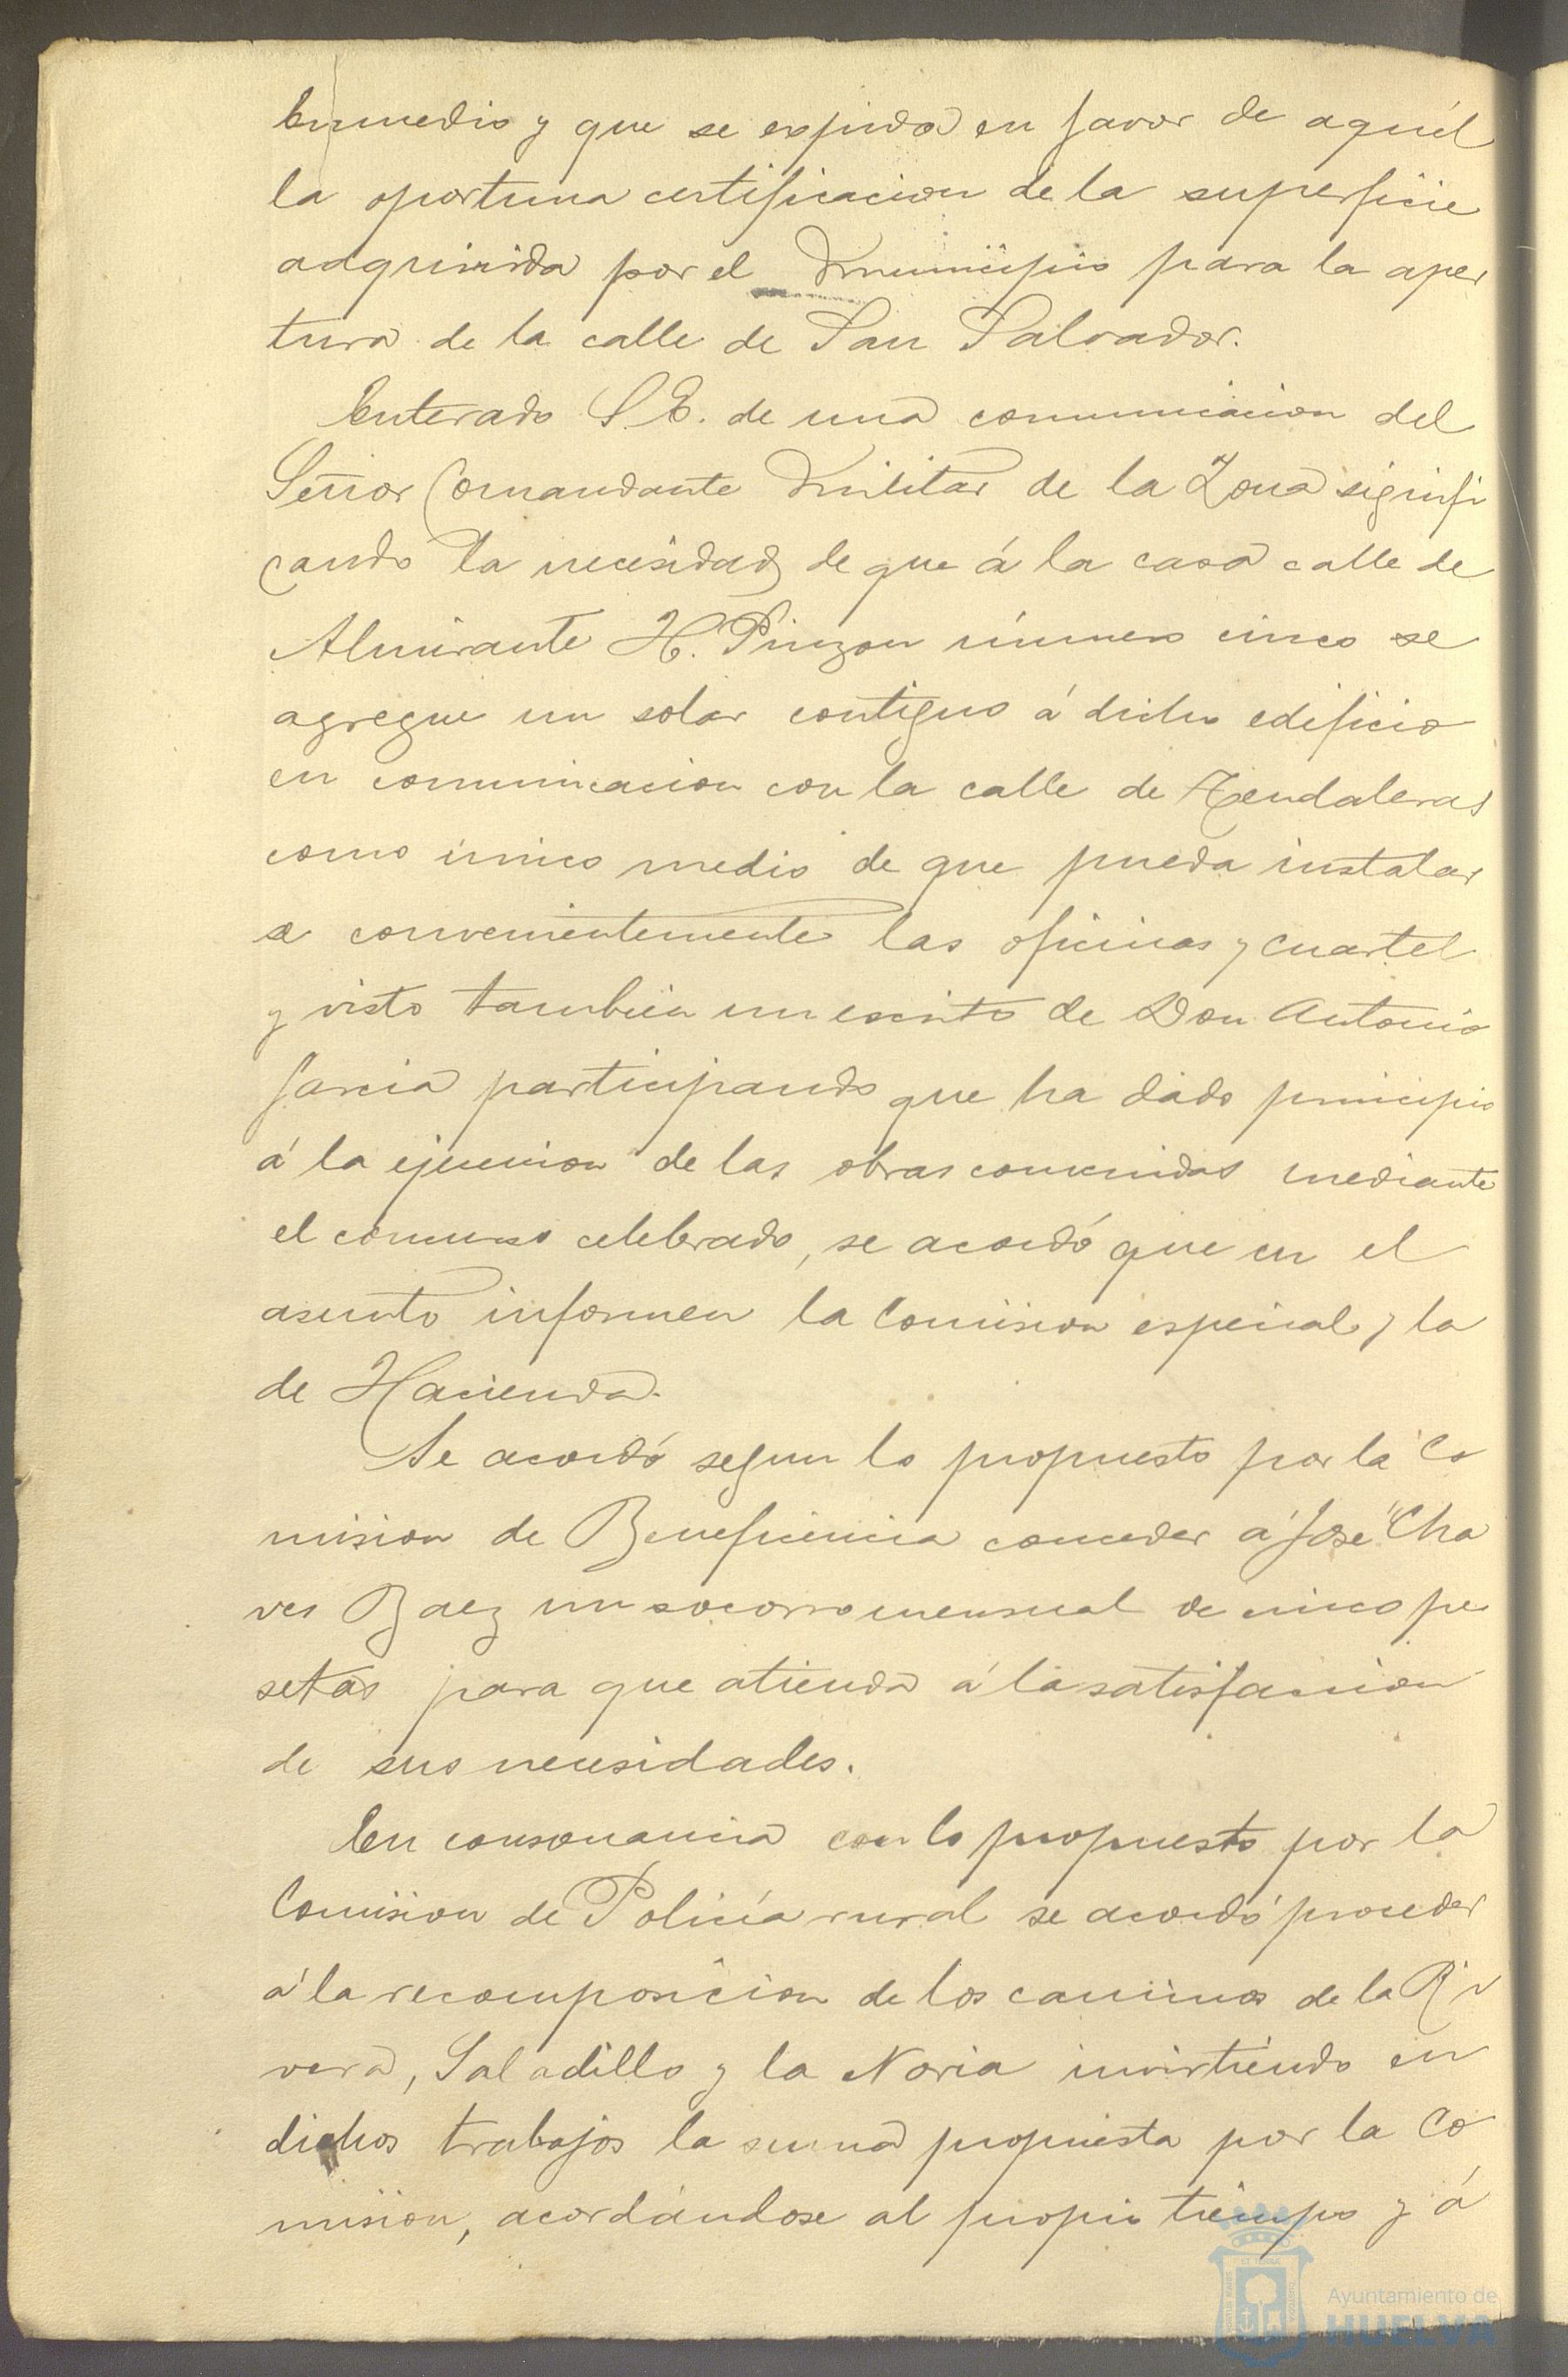 Enmedio y que se expida en favor de aquél
la oportuna certificacion de la superficie
adquirida por el Municipio para la aper
tura de la calle de San Salvador.
Enterado S.E. de una comunicacion del
Señor Comandante Militar de la Zona signifi
cando la necesidad de que á la casa calle de
Almirante H. Pinzon número cinco se
agregue un solar contiguo á dicho edificio
en comunicacion con la calle de Tendaleras
como único medio de que pueda instalar
se convenientemente las oficinas y cuartel
y visto tambien un escrito de Don Antonio
Garcia participando que ha dado principio
á la ejecucion de las obras convenidas mediante
el concurso celebrado, se acordó que en el
asunto informen la Comision especial y la
de Hacienda.
Se acordó segun lo propuesto por la Co
mision de Beneficencia conceder á José Cha
ves Baez un socorro mensual de cinco pe
setas para que atienda á la satisfaccion
de sus necesidades.
En consonancia con lo propuesto por la
Comision de Policía rural se acordó proceder
á la recomposicion de los caminos de la Ri
vera, Saladillo y la Noria invirtiendo en
dichos trabajos la suma propuesta por la Co
mision, acordándose al propio tiempo y á
Ayuntamiento de
HUELVA